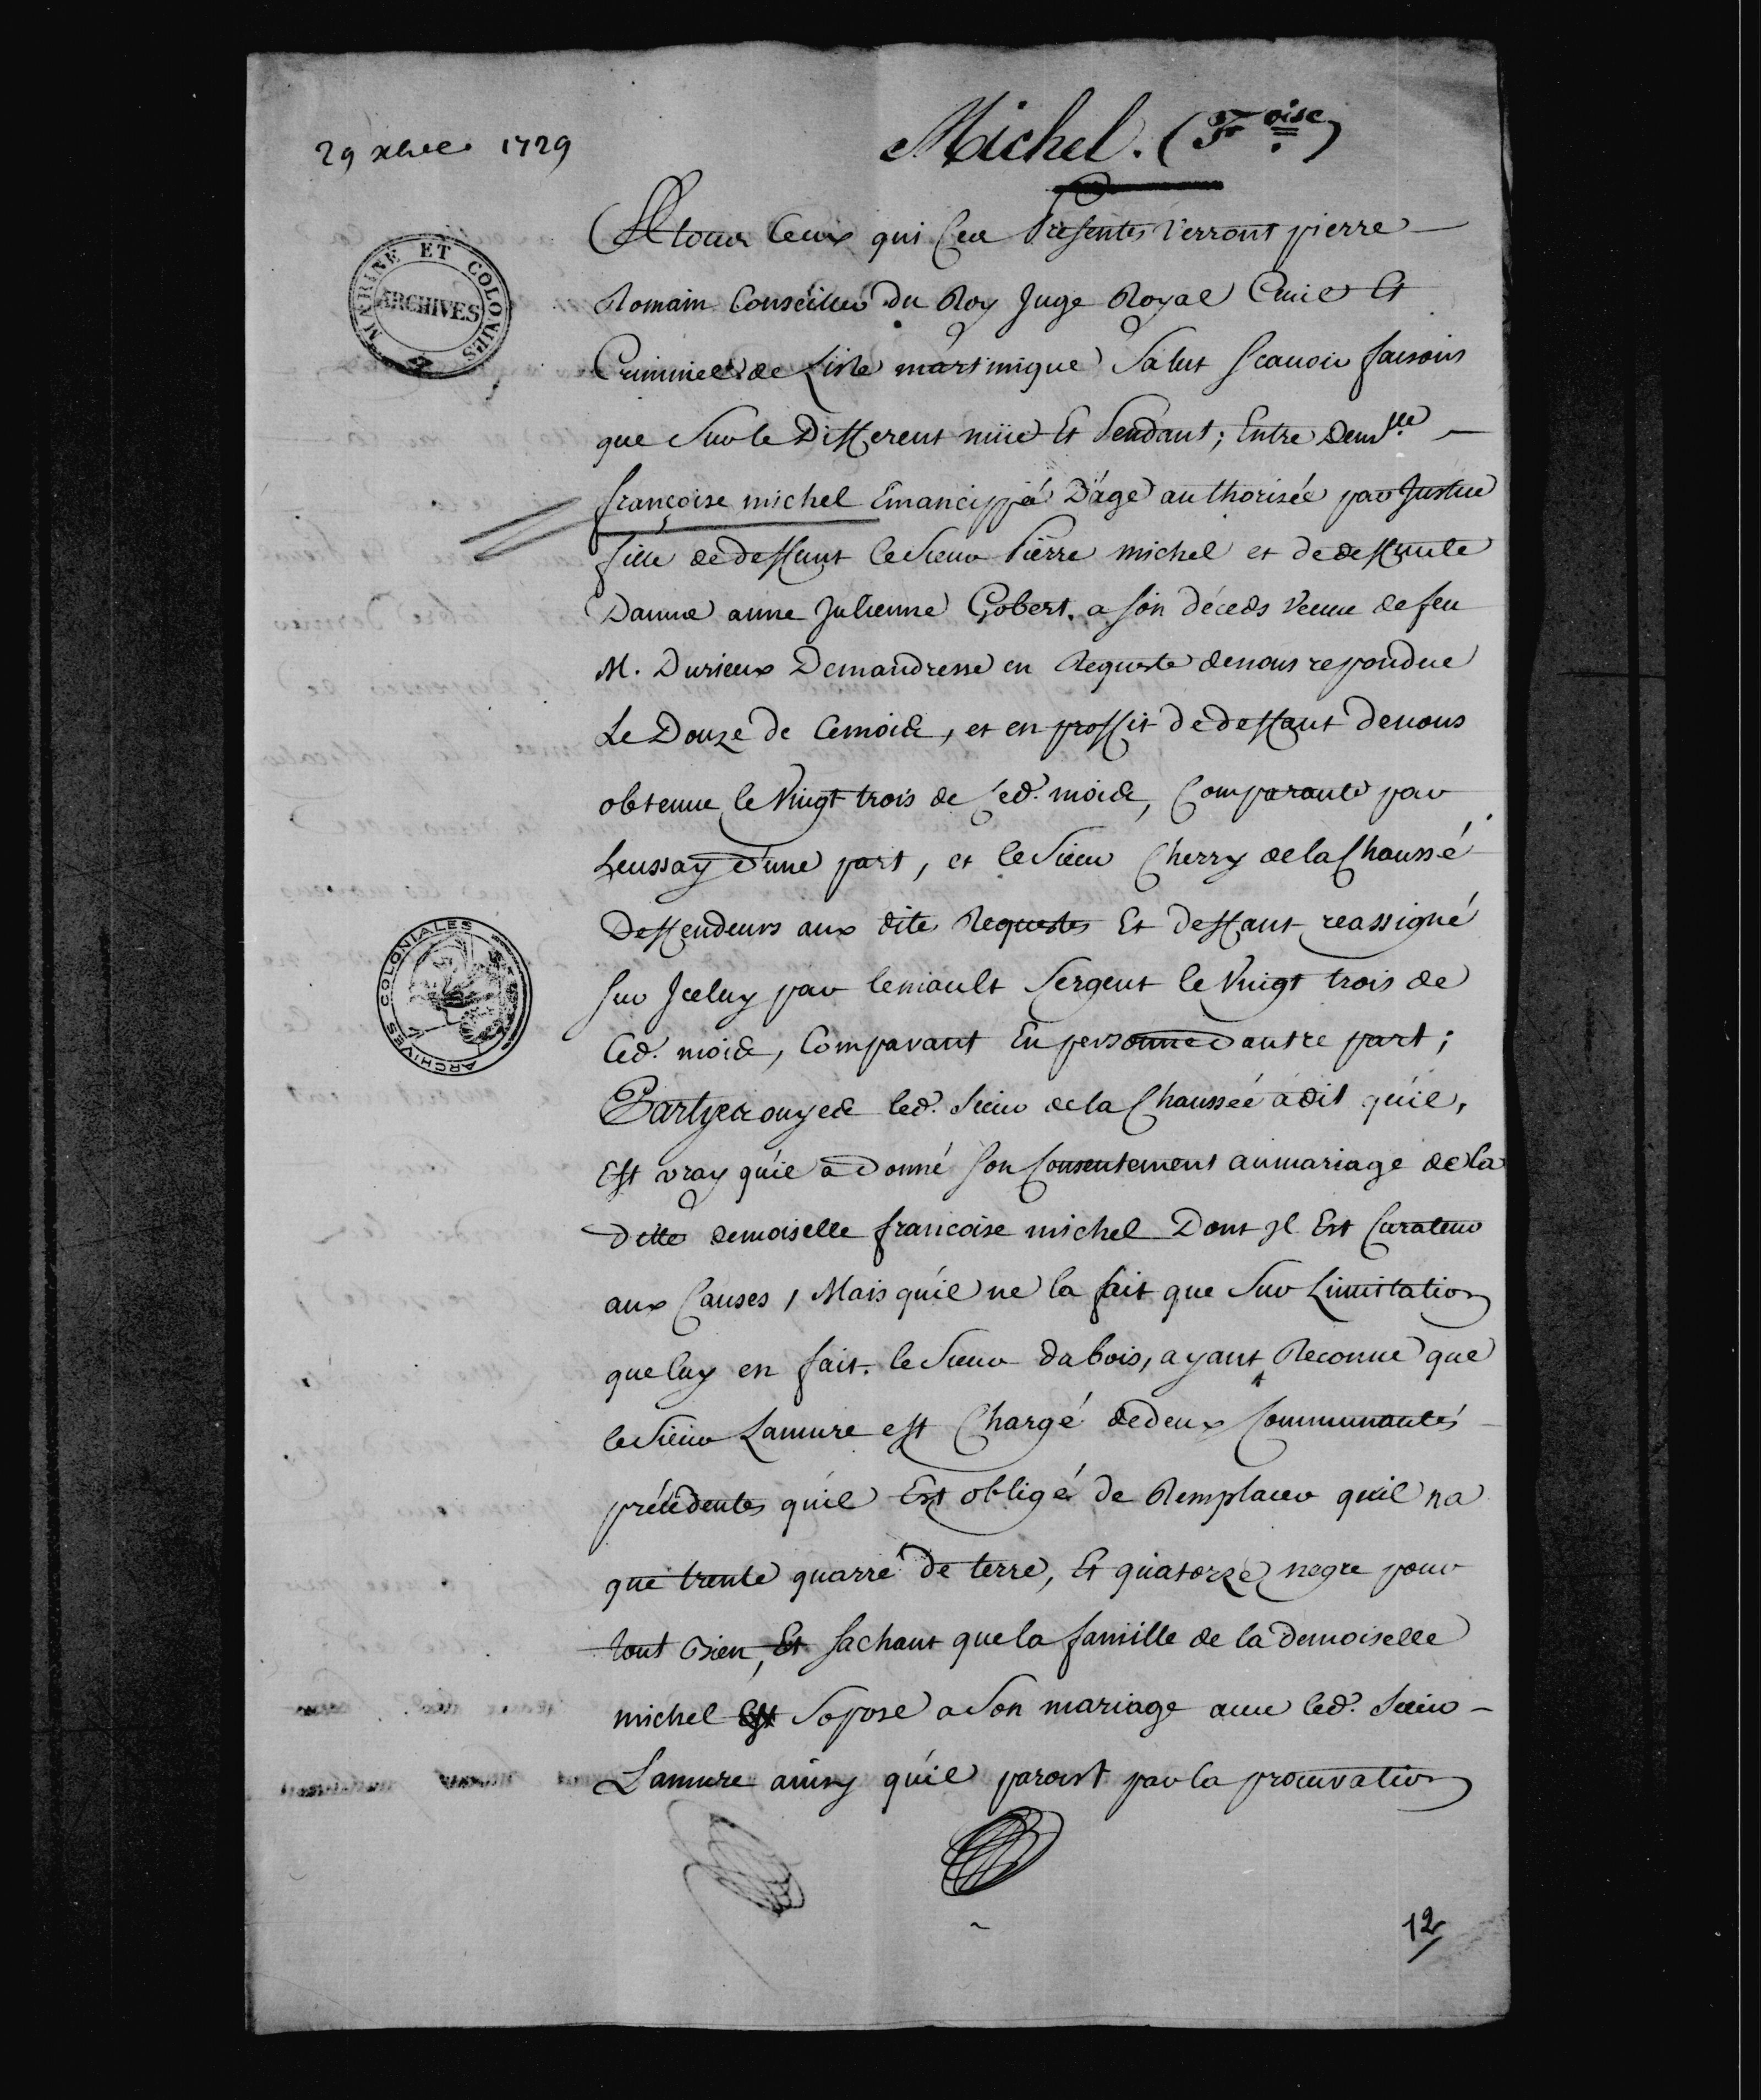 29 xbre 1729
Michel. (Fr.oise)
A tous Ceux qui Ces Presentes Verront pierre
Romain Conseiller Du Roy Juge Royal Civil Et
Criminel de Lisle martinique Salut Scauoir faisons
que Sur le Different müe Et Pendant; Entre Demlle
françoise michel Emancippé D'áge authorisée par Justice
fille de deffunt le Sieur Pierre michel et de deffunte
Damme anne Julienne Gobert. a son déceds Veuue de feu
M. Durieux Demandresse en Requeste de nous repondue
Le Douze de Ce mois, et en proffit de deffaut de nous
obtenue le Vingt trois de Ced. mois, Comparante par
Leussay d'une part, et le Sieur Cherry de la Chaussé
Deffendeurs aux dite Requestes Et deffaut reassigné
sur Jceluy par leniault Sergent le Vingt trois de
Ced. mois, Comparant En personne d'autre part;
Partyes ouyes led. Sieur de la Chaussée a dit qu'il,
Est vray qu'il a Donné son Consentement au mariage de la
ditte demoiselle francoise michel Dont Jl Est Curateur
aux Causes, Mais qu'il ne la fait que Sur Linvitation
que luy en fait. le Sieur dabois, ayant Reconnue que
le Sieur Lamure est Chargé de deux Communautés
précedentes qu'il Est obligé de Remplacer qu'il na
que trente quarré de terre, Et quatorze negre pour
tout bien, Et sachant que la famille de la demoiselle
michel Sopose a Son mariage auec led. Sieur
Lamure ainsy qu'il paroist par la procuration
12
MARINE ET COLONIES
ARCHIVES
ARCHIVES COLONIALES